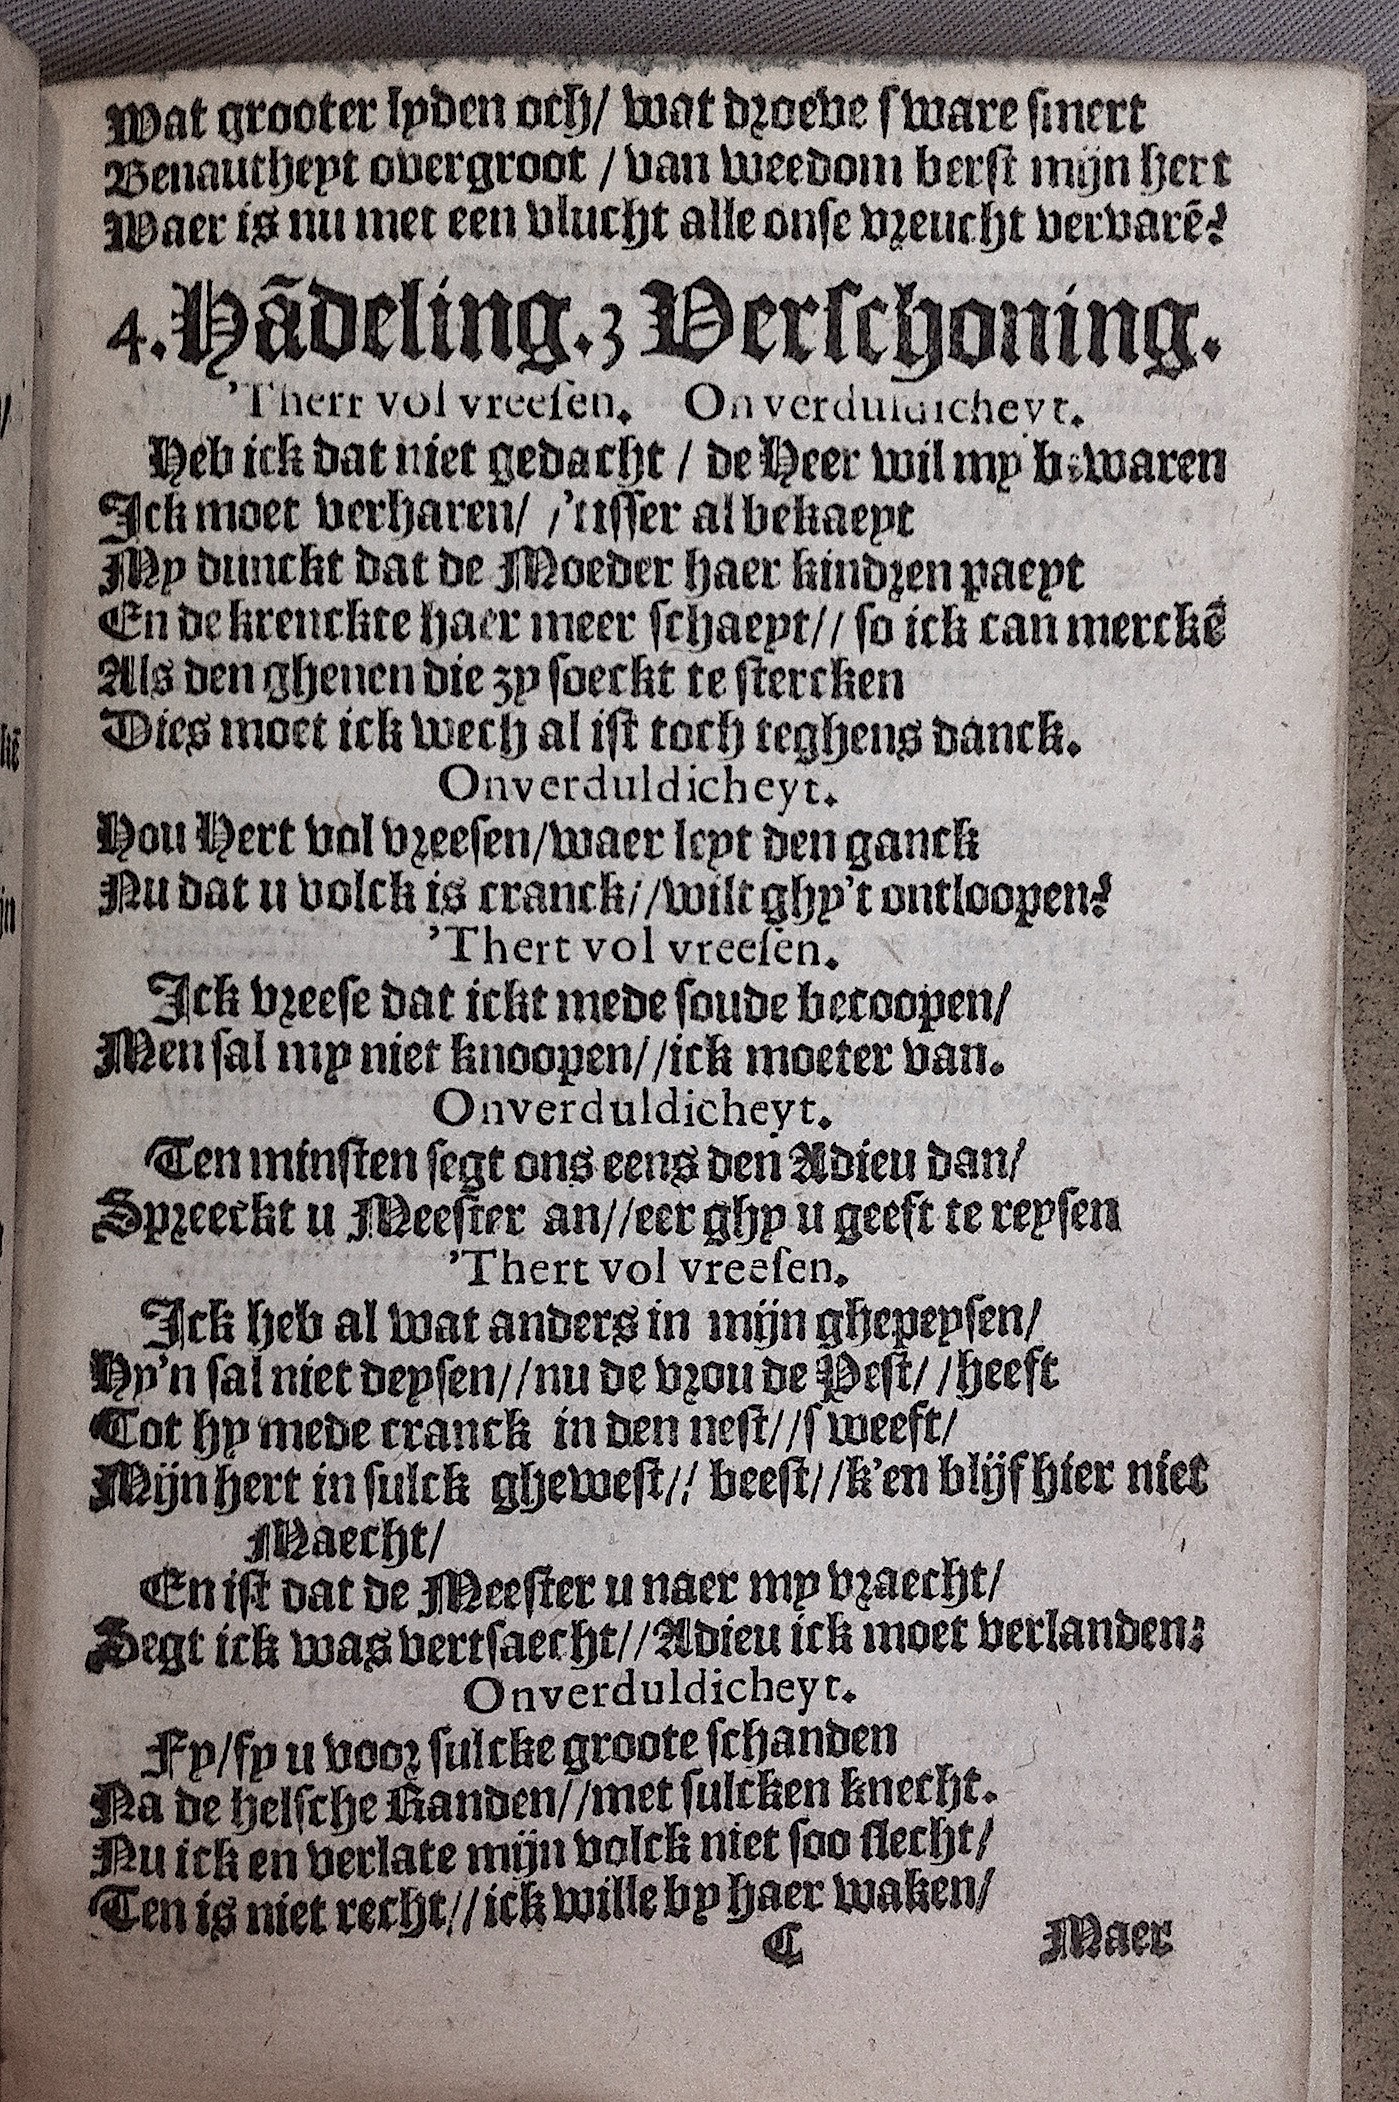 Wat grooter lyden och/ wat droeve sware smert
Benautheyt overgroot / van weedom berst mijn hert
Waer is nu met een vlucht alle onse vreucht vervarẽ?
4. Hãdeling. 3 Verschoning.
'Thert vol vreesen. Onverduldicheyt.
Heb ick dat niet gedacht / de Heer wil my bewaren
Ick moet verharen/ /'tisser al bekaeyt
My dunckt dat de Moeder haer kindren paeyt
En de krenckte haer meer schaeyt// so ick can merckẽ
Als den ghenen die zy soeckt te stercken
Dies moet ick wech al ist toch teghens danck.
Onverduldicheyt.
Hou Hert vol vreesen/waer leyt den ganck
Nu dat u volck is cranck//wilt ghy't ontloopen?
'Thert vol vreesen.
Ick vreese dat ickt mede soude becoopen/
Men sal my niet knoopen//ick moeter van.
Onverduldicheyt.
Ten minsten segt ons eens den Adieu dan/
Spreeckt u Meester an//eer ghy u geeft te reysen
'Thert vol vreesen.
Ick heb al wat anders in mijn ghepeysen/
Hy'n sal niet deysen//nu de vrou de Pest//heeft
Tot hy mede cranck in den nest//sweeft/
Mijn hert in sulck ghewest// beest//k'en blijf hier niet
Maecht/
En ist dat de Meester u naer my vraecht/
Segt ick was vertsaecht//Adieu ick moet verlanden:
Onverduldicheyt.
Fy/fy u voor sulcke groote schanden
Na de helsche Randen//met sulcken knecht.
Nu ick en verlate mijn volck niet soo slecht/
Ten is niet recht//ick wille by haer waken/
C Maer